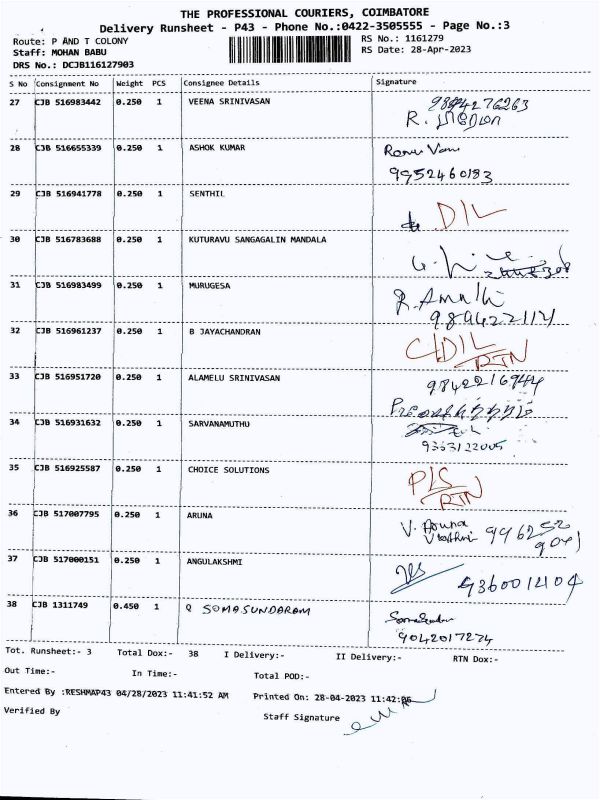 THE PROFESSIONAL COURIERS, COIMBATORE
Delivery Runsheet - P43 - Phone No.:0422-3505555 - Page No.:3
Route: P AND T COLONY RS No.: 1161279
Staff: MOHAN BABU RS Date: 28-Apr-2023
DRS No.: DCJB116127903
S No Consignment No Weight PCS Consignee Details Signature
27 CJB 516983442 0.250 1 VEENA SRINIVASAN
R.
28 CJB 516655339 0.250 1 ASHOK KUMAR
9952460183
29 CJB 516941778 0.250 1 SENTHIL
D/L
30 CJB 516783688 0.250 1 KUTURAVU SANGAGALIN MANDALA
31 CJB 516983499 0.250 1 MURUGESA
32 CJB 516961237 0.250 1 B JAYACHANDRAN
RTN
33 CJB 516951720 0.250 1 ALAMELU SRINIVASAN
9842216944
34 CJB 516931632 0.250 1 SARVANAMUTHU
9363122005
35 CJB 516925587 0.250 1 CHOICE SOLUTIONS
P/S
RTN
36 CJB 517007795 0.250 1 ARUNA
V. Aruna 996252
9041
37 CJB 517000151 0.250 1 ANGULAKSHMI
9360012104
38 CJB 1311749 0.450 1 Q SOMASUNDARAM
9042017274
Tot. Runsheet:- 3 Total Dox:- 38 I Delivery:- II Delivery:- RTN Dox:-
Out Time:- In Time:- Total POD:-
Entered By :RESHMAP43 04/28/2023 11:41:52 AM Printed On: 28-04-2023 11:42:06
Verified By Staff Signature